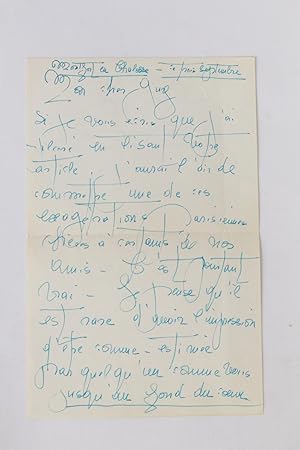 Montfort en Chalosse - 1 septembre
Mon cher Guy
Si je vous écris que j'ai
pleuré en lisant votre
article, j'aurai l'air de
commettre une de ces
exagérations parisiennes
chères à certains de nos
amis - C'est pourtant
vrai - Je pense qu'il
est rare d'avoir l'impression
d'être connue - estimée
par quelqu'un comme vous
jusqu'au fond du coeur